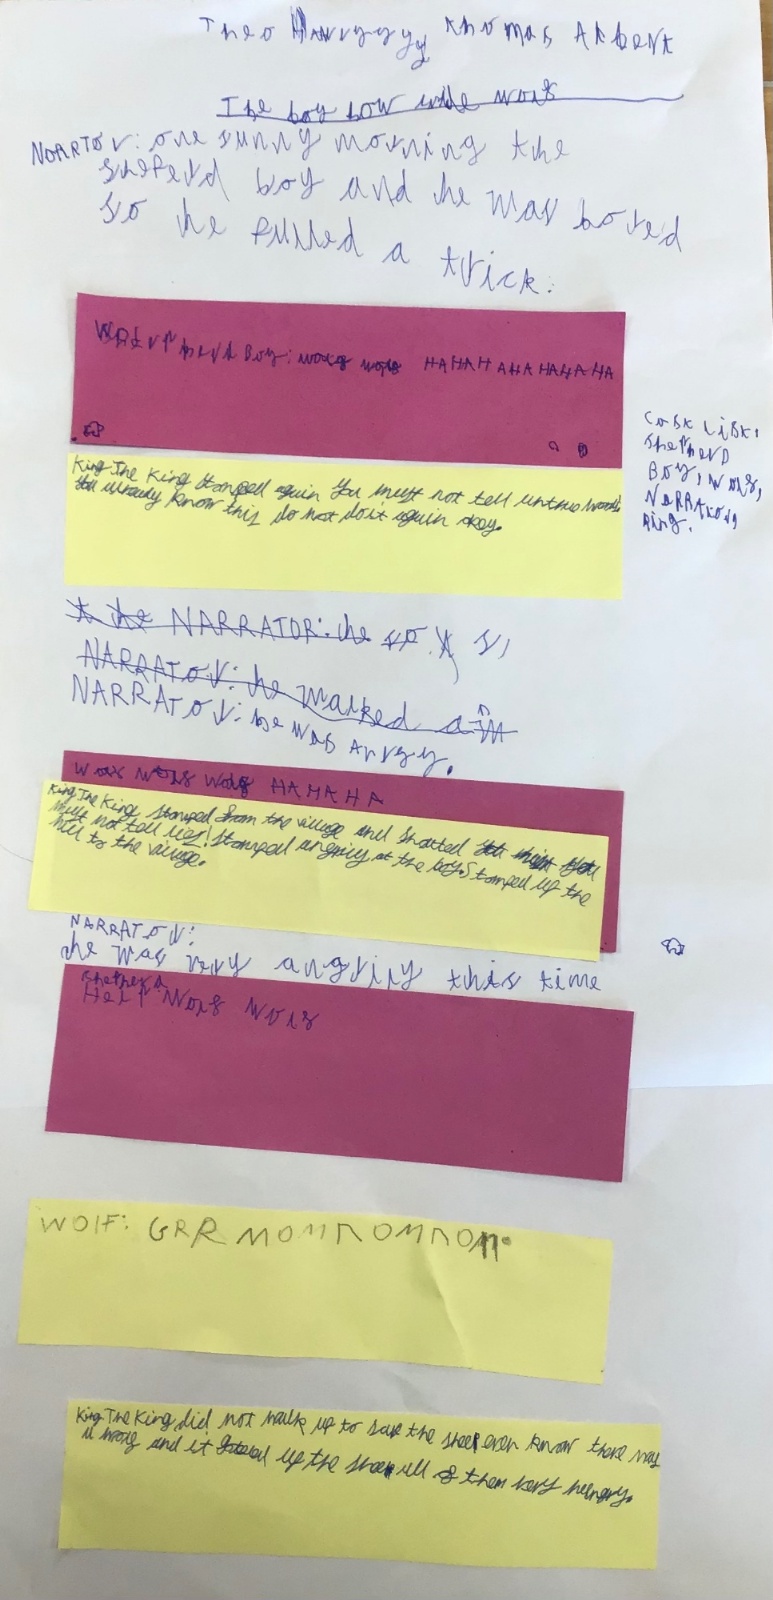 Theo Harryyyy Thomas Albert
The boy how
NARRTOr: one sunny morning the
sheferd boy and he was bored
so he pulled a trick.
Boy: HAHAHAHAHAHAHA
Cast List:
Shepherd
Boy, wolf,
Narrator,
King.
King The King stomped again You must not tell untrue words
You already know this do not do it again okay.
NARRATOR: he
NARRATOr: he walked
NARRATOr: he was
wolf wolf wolf HA HA HA
King The King stomped from the village and shouted You
must not tell lies! stomped angrily at the boy. Stomped up the
hill to the village.
NARRATOr:
he was very angriry this time
Shepherd
Help Wolf Wolf
WOlF: GRR NOM NOM NOM.
King The King did not walk up to save the sheep even know there was
a and it up the sheep all of them very hungry.